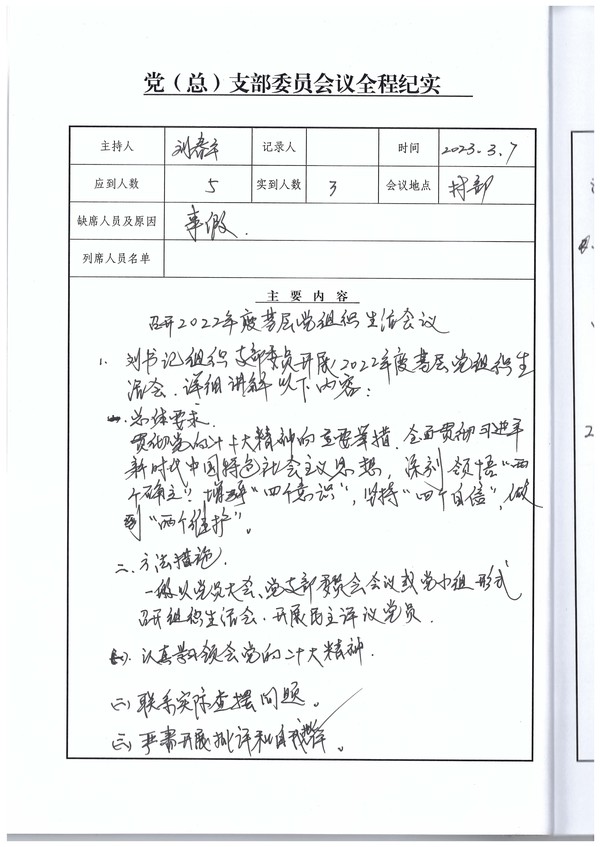 党（总）支部委员会议全程纪实
主持人 刘春平 记录人 时间 2023.3.7
应到人数 5 实到人数 3 会议地点 村部
缺席人员及原因 事假.
列席人员名单
主要内容
召开2022年度基层党组织生活会议
1. 刘书记组织支部委员开展2022年度基层党组织生
活会.详细讲解以下内容：
一.总体要求.
贯彻党的二十大精神的重要举措.全面贯彻习近平
新时代中国特色社会主义思想，深刻领悟"两
个确立"增强"四个意识"，坚持"四个自信"，做
到"两个维护"。
二.方法措施.
一般以党员大会、党支部委员会会议或党小组形式
召开组织生活会.开展民主评议党员.
(一).认真学习领会党的二十大精神.
(二)联系实际查摆问题。
(三)严肃开展批评和自我批评。
2